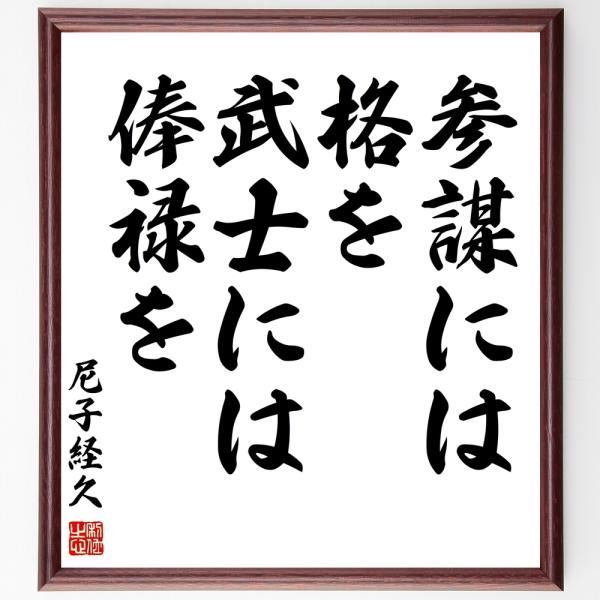 参謀には
格を
武士には
俸禄を
尼子経久